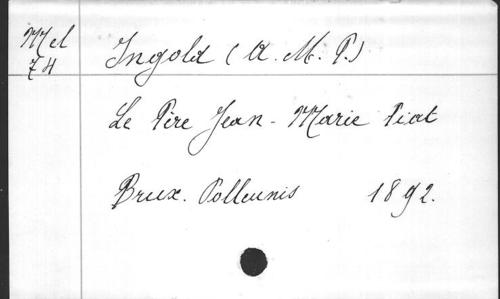 Mel
74
Ingold (A. M. P.)
Le Père Jean-Marie Piat
Brux. Polleunis 1892.